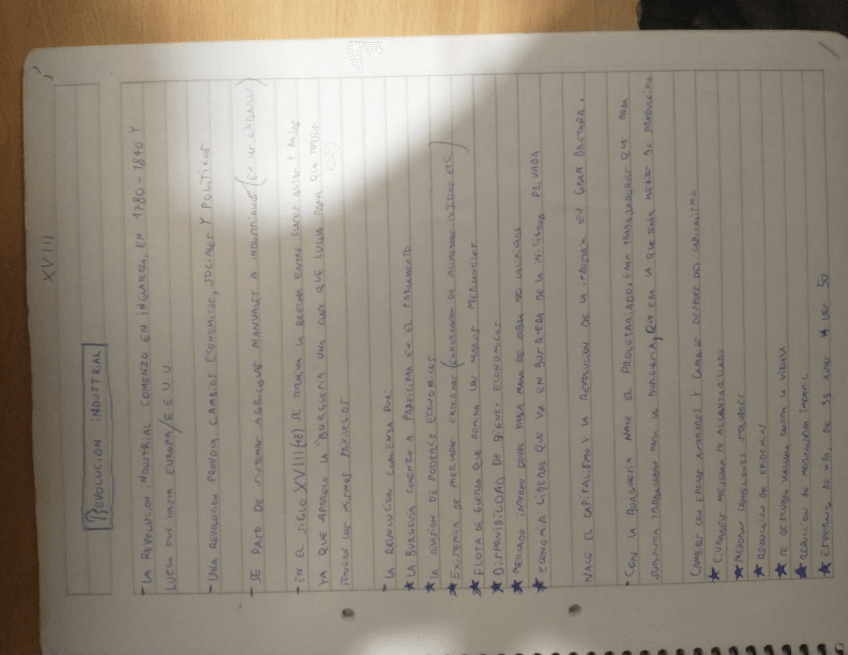 XVIII
REVOLUCION INDUSTRIAL
- LA REVOLUCION INDUSTRIAL COMENZO EN INGLATERRA, EN 1780-1840 Y
LUEGO FUE HASTA EUROPA/E E.U.U
- UNA REVOLUCION PROVOCA CAMBIOS ECONOMICOS, SOCIALES Y POLITICOS
- SE PASO DE SISTEMAS AGRICOLAS MANUALES A INDUSTRIALES (EN LAS CIUDADES)
- EN EL SIGLO XVIII (18) SE TERMINA LA BRECHA ENTRE CLASES ALTAS Y BAJAS
YA QUE APARECE LA "BURGUESIA" UNA CLASE QUE LUCHA PARA QUE TODOS
TENGAN LOS MISMOS DERECHOS
- LA REVOLUCION COMIENZA POR:
★ LA BURGUESIA COMENZO A PARTICIPAR EN EL PARLAMENTO
★ LA DIVISION DE PODERES ECONOMICOS
★ EXISTENCIA DE MERCADOS EXTERNOS (EXPORTACION DE ALIMENTOS TEJIDOS ETC)
★ FLOTA DE GUERRA QUE DOMINA LOS MARES MERCANTILES
★ DISPONIBILIDAD DE BIENES ECONOMICOS
★ MERCADO INTERNO PARA MANO DE OBRA NO CALIFICADA
★ ECONOMIA LIBERAL QUE VA EN BUSQUEDA DE LA INICIATIVA PRIVADA
NACE EL CAPITALISMO Y LA REVOLUCION DE LA INDUSTRIA EN GRAN BRETAÑA.
• CON LA BURGUESIA NACE EL PROLETARIADO, ERAN TRABAJADORES QUE PARA
SUBSISTIR TRABAJABAN PARA LA BURGUESIA, QUE ERA LA QUE TENIA MEDIOS DE PRODUCCION
CAMBIOS DESPUES DEL CAPITALISMO
★ CIUDADES MEJORAN SU ALCANTARILLADO
★ MEJORAN CONDICIONES SOLARES
★ REDUCCION DE EPIDEMIAS
★ SE DESCUBRE VACUNA CONTRA LA VIRUELA
★ REDUCCION DE MORTALIDAD INFANTIL
★ ESPERANZA DE VIDA DE 35 AÑOS A LOS 50